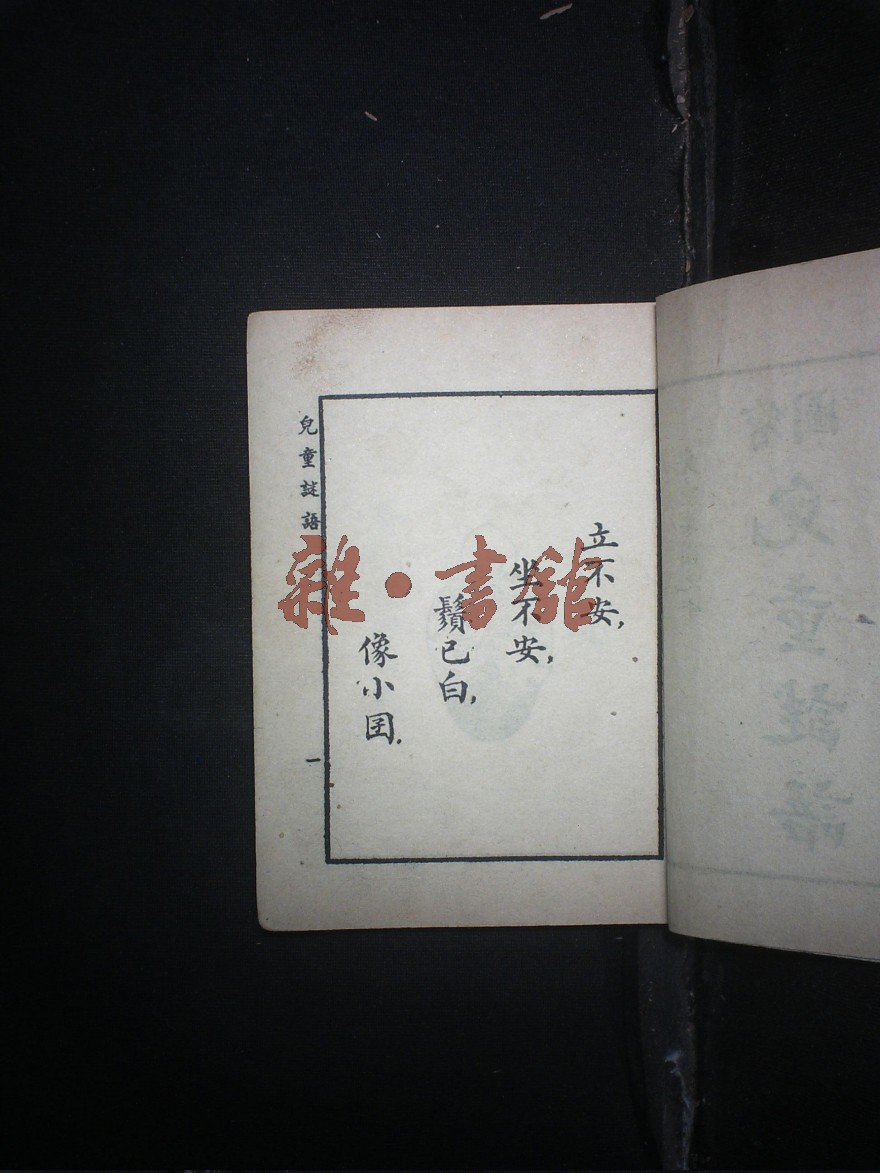 立不安,
坐不安,
鬚已白,
像小囝.
兒童謎語
一
雜·書館
兒童謎語